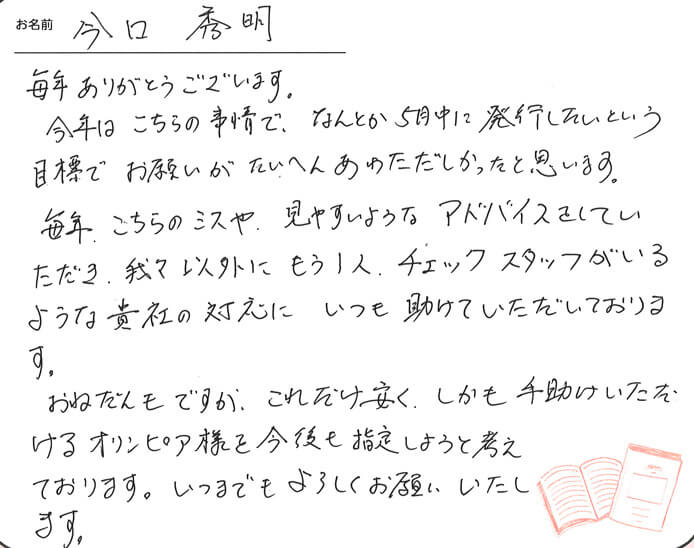 お名前 今口 秀明
毎年ありがとうございます。
今年は こちらの事情で、なんとか 5月中に 発行したいという
目標で お願いが たいへん あわただしかったと思います。
毎年、こちらのミスや、見やすいような アドバイスをしてい
ただき、我々以外に もう1人、チェック スタッフがいる
ような貴社の対応に いつも 助けていただいておりま
す。
おねだんも ですが、これだけ安く、しかも 手助けいただ
ける オリンピア様を 今後も 指定しようと考え
ております。いつまでも よろしくお願い いたし
ます。